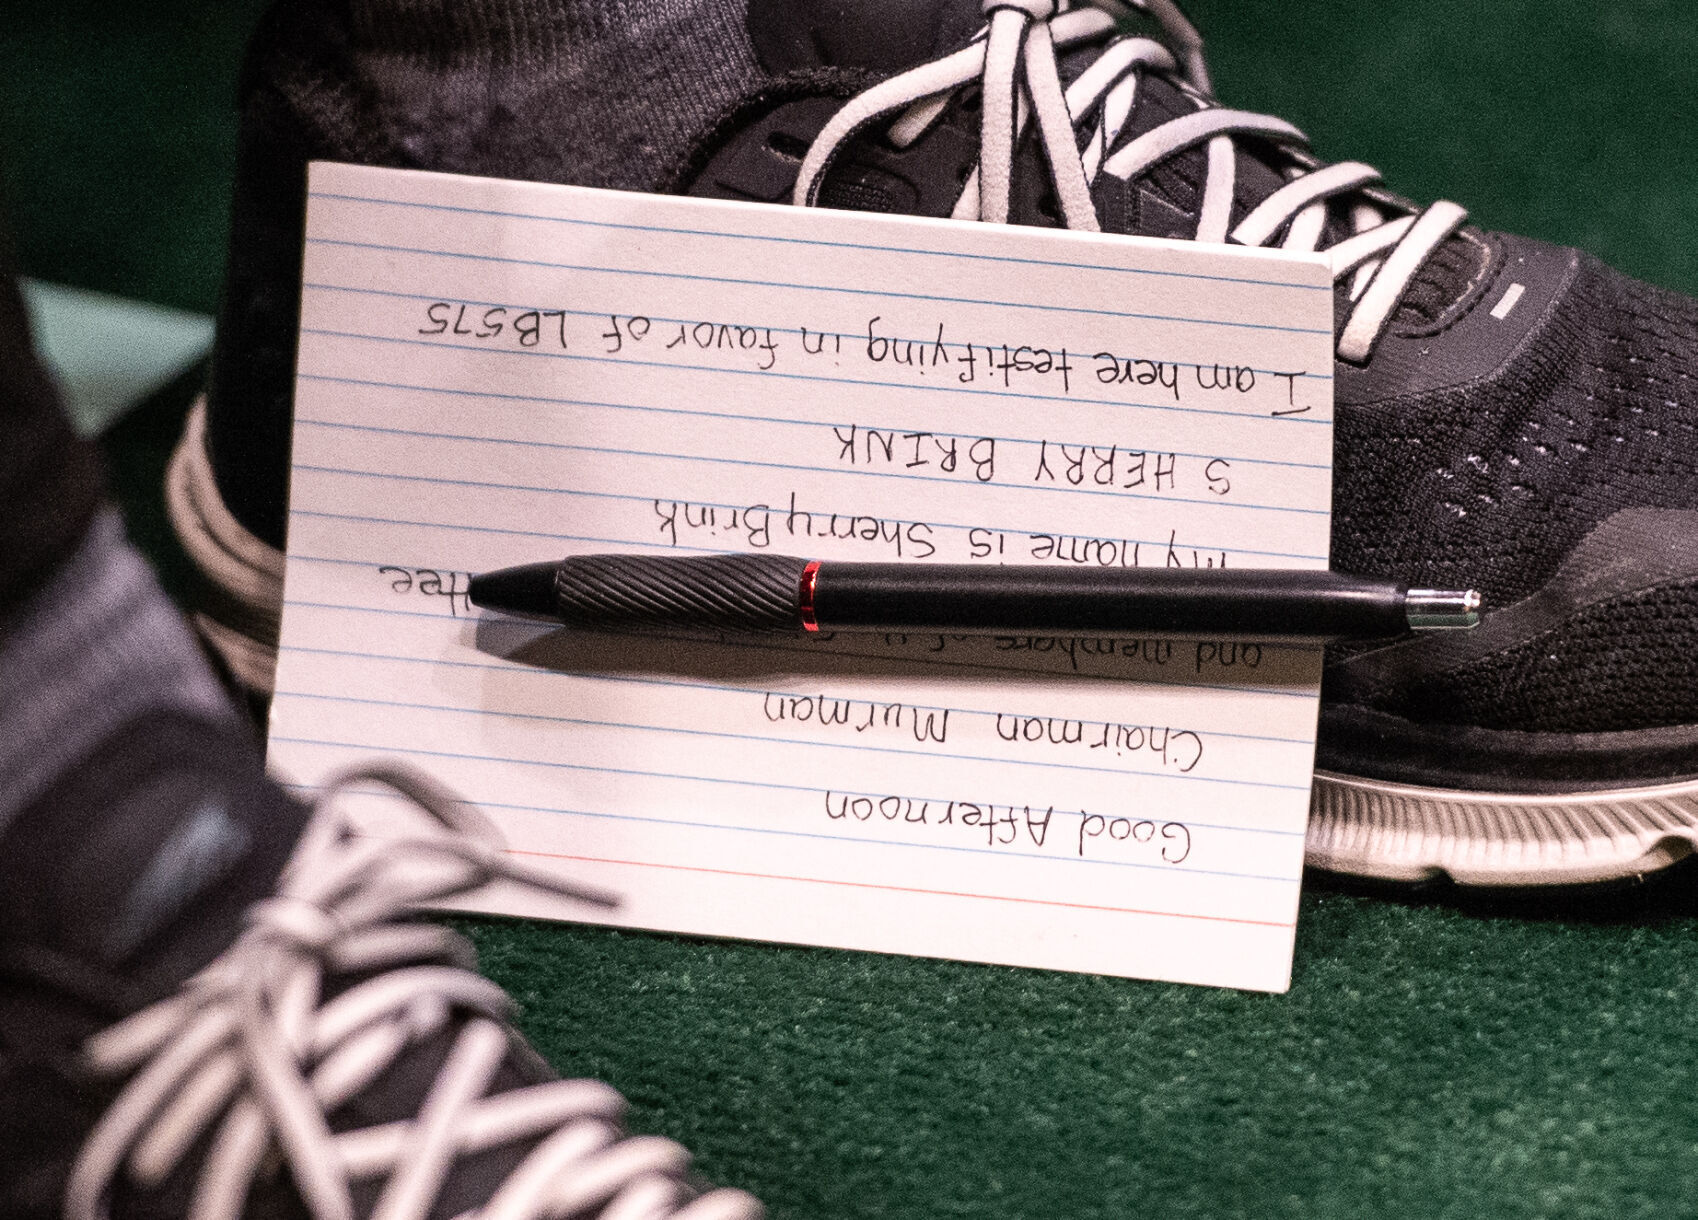 Good Afternoon
Chairman Murman
and members of
my name is Sherry Brink
SHERRY BRINK
I am here testifying in favor of LB575